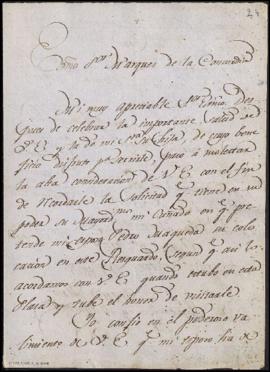 24
Exmo Sor Marques de la Concordia
Mi muy apreciable Sor Exmo. Des
pues de celebrar la importante salud de
V.E. y la de mi Sra su hija, de cuyo bene
ficio disfruto pr paso a molestar
la alta consideración de V.E. con el fin
de recordarle la solicitud qe tiene en su
poder su Mayordmo mi Cuñado en qe pre
tende mi esposo Pedro Maqueda su colo
cacion en este Resguardo, segun qe asi lo
acordamos con V.E. quando estubo en esta
Plaza y tube el honor de visitarle
Yo confio en el poderoso va
limiento de V.E. qe mi esposo ha de